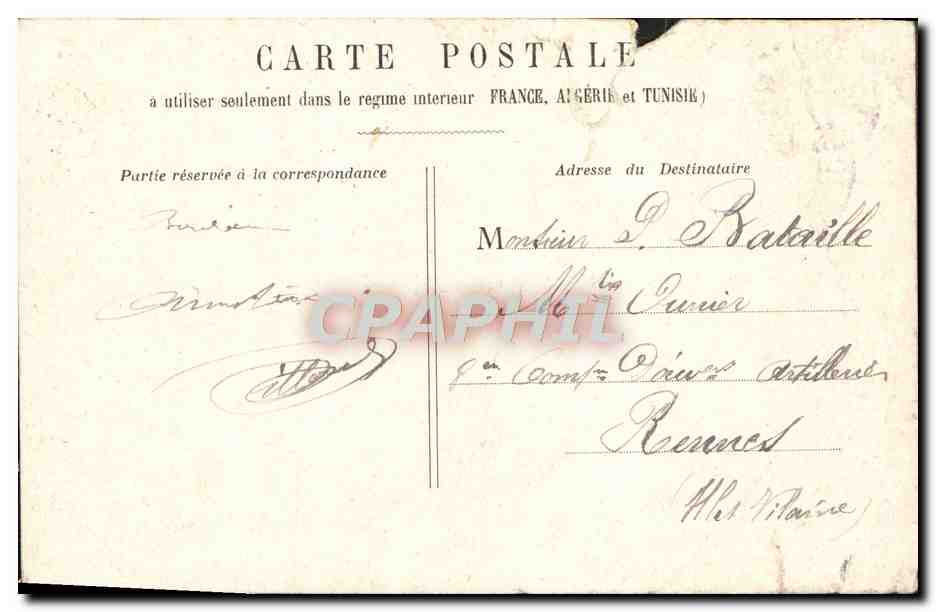 CARTE POSTALE
à utiliser seulement dans le regime interieur FRANCE, ALGÉRIE et TUNISIE)
Partie réservée à la correspondance
Adresse du Destinataire
Monsieur P. Bataille
Mtre Ouvrier
Compie d'ouvers Artillerie
Rennes
(Ille et Vilaine)
CPAPHIL